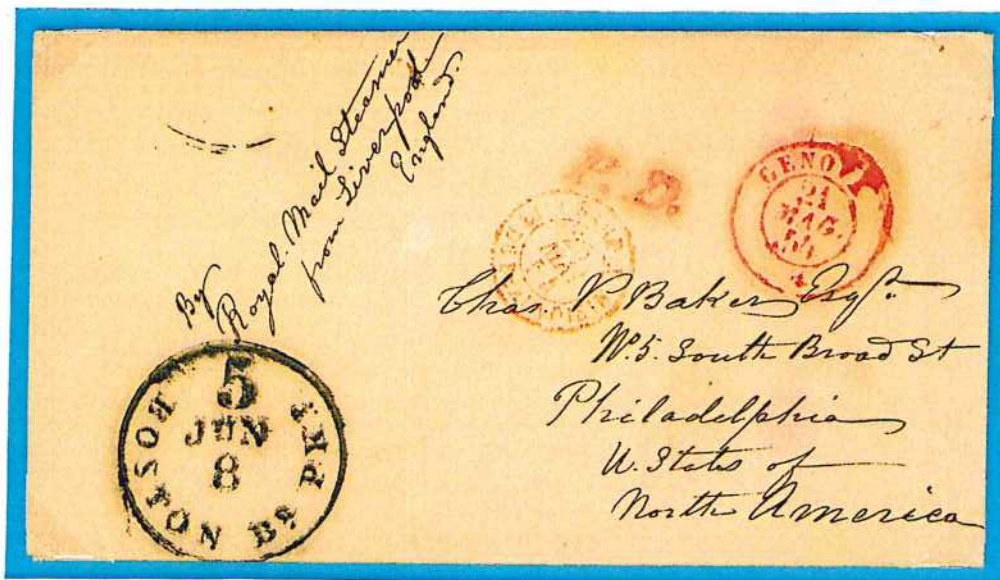 By
Royal Mail Steamer
from Liverpool
England.
P.D.
GENOVA
21
MAG.
54
Chas. P. Baker Esqr.
No. 5. South Broad St
Philadelphia
U. States of
North America
5
JUN
8
BOSTON Br. PKT